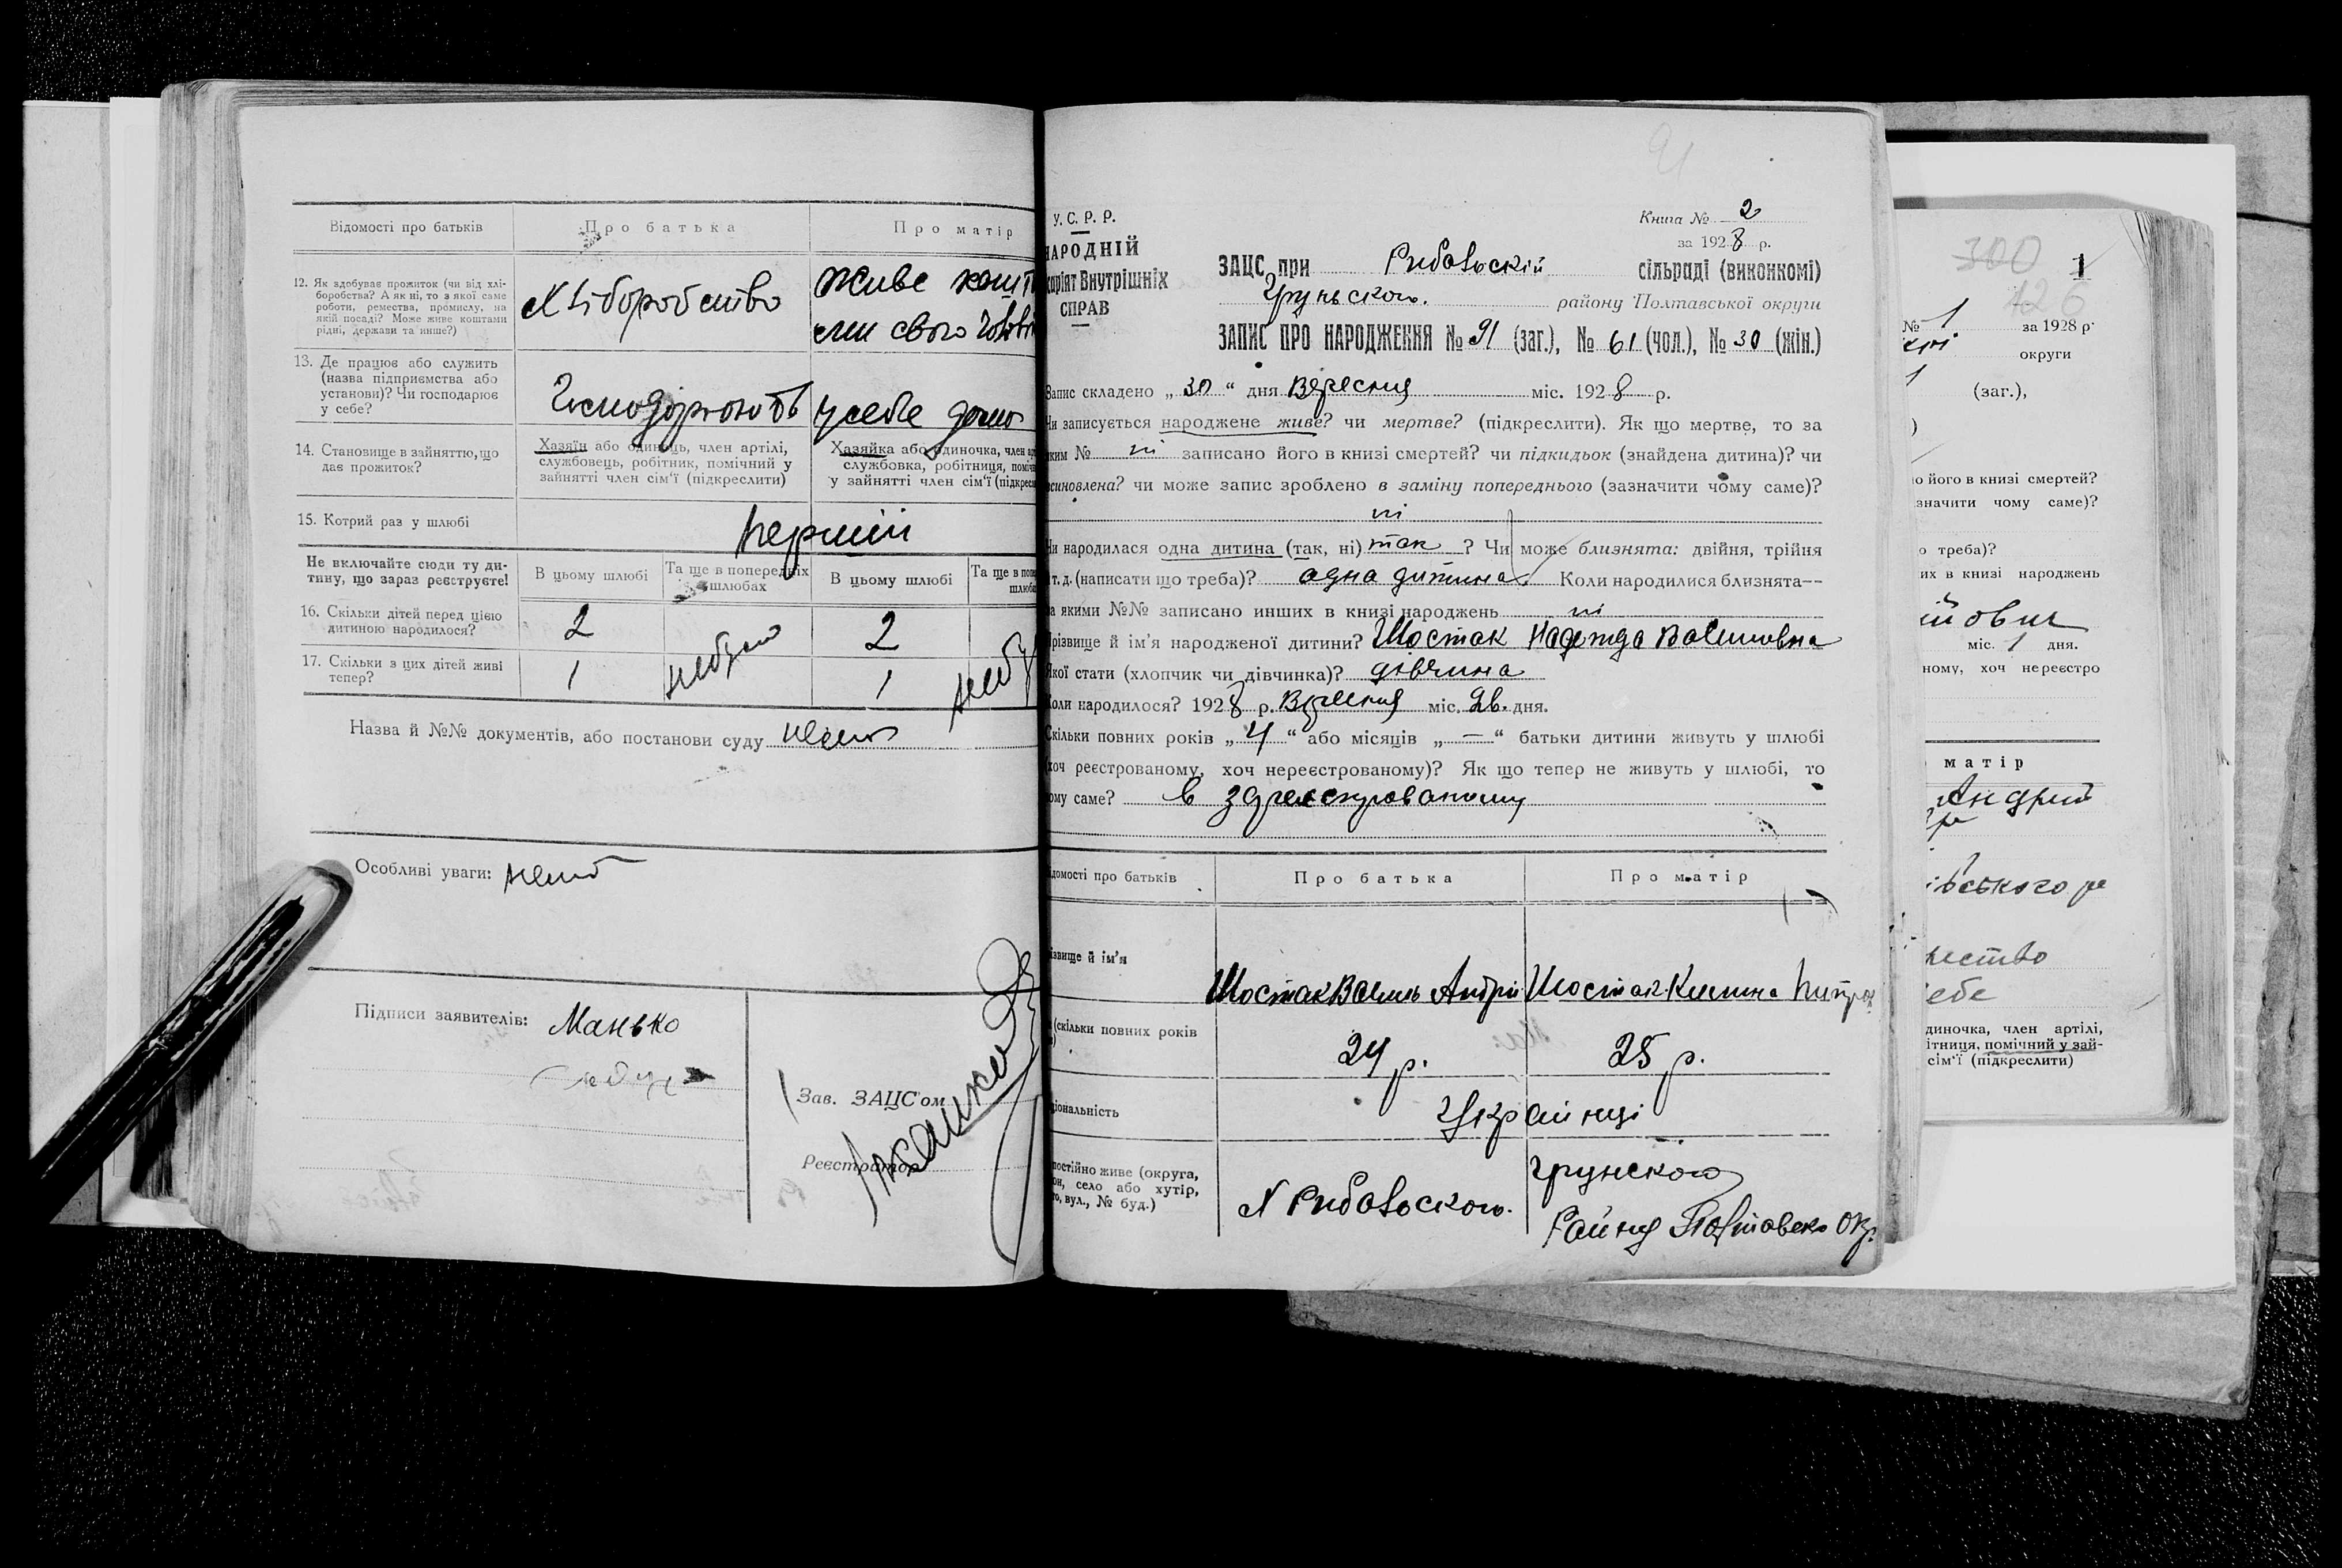 Відомості про батьків
Про батька
Про матір
12. Як здобуває прожиток (чи від хлі-
боробства? А як ні, то з якої саме
роботи, ремества, промислу, на
якій посаді? Може живе коштами
рідні, держави та инше?)
Хліборобство
Живе кошт
ами свого чолові
13. Де працює або служить
(назва підприємства або
установи)? Чи господарює
у себе?
Господорюють
у себе дома
14. Становище в зайняттю, що
дає прожиток?
Хазяїн або одинець, член артілі,
службовець, робітник, помічний у
зайнятті член сім'ї (підкреслити)
Хазяйка або одиночка, член
службовка, робітниця,
у зайнятті член сім'ї
15. Котрий раз у шлюбі
перший
Не включайте сюди ту ди-
тину, що зараз реєструєте!
В цьому шлюбі
Та ще в попередніх
шлюбах
В цьому шлюбі
Та ще в
16. Скільки дітей перед цією
дитиною народилося?
2
2
17. Скільки з цих дітей живі
тепер?
1
небуло
1
Назва й №№ документів, або постанови суду
Особливі уваги:
Підписи заявителів: Манько
Зав. ЗАЦС'ом
Реєстратор
91
У. С. Р. Р.
НАРОДНІЙ
Внутрішніх
СПРАВ
Книга № 2
за 1928 р.
ЗАЦС при Рибальскій сільраді (виконкомі)
Груньского. району Полтавської округи
ЗАПИС ПРО НАРОДЖЕННЯ № 91 (заг.), № 61 (чол.), № 30 (жін.)
Запис складено „30“ дня Вересня міс. 1928 р.
Чи записується народжене живе? чи мертве? (підкреслити). Як що мертве, то за
яким № ні записано його в книзі смертей? чи підкидьок (знайдена дитина)? чи
всиновлена? чи може запис зроблено в заміну попереднього (зазначити чому саме)?
ні
Чи народилася одна дитина (так, ні) так ? Чи може близнята: двійня, трійня
і т. д. (написати що треба)? одна дитина Коли народилися близнята—
за якими №№ записано инших в книзі народжень ні
Прізвище й ім'я народженої дитини? Шостак Надежда Васильовна
Якої стати (хлопчик чи дівчинка)? дівчина
Коли народилося? 1928 р. Вересня міс. 26. дня.
Скільки повних років „4“ або місяців „—“ батьки дитини живуть у шлюбі
(хоч реєстрованому, хоч нереєстрованому)? Як що тепер не живуть у шлюбі, то
чому саме? в здреестрованому
Відомості про батьків
Про батька
Про матір
Прізвище й ім'я
Шостак Василь Андрій
Шостак Килина
(скільки повних років
24 р.
25 р.
Національність
Українці
постійно живе (округа,
село або хутір,
вул., № буд.)
Х Рибальского.
Грунского
Району Полтавско Окр.
300
1
126
№ 1 за 1928 р.
округи
(заг.),
його в книзі смертей?
зазначити чому саме)?
треба)?
их в книзі народжень
йович
міс. 1 дня.
ному, хоч нереєстро
матір
Андрій
івського ра
себе
одиночка, член артілі,
ітниця, помічний у зай-
сім'ї (підкреслити)